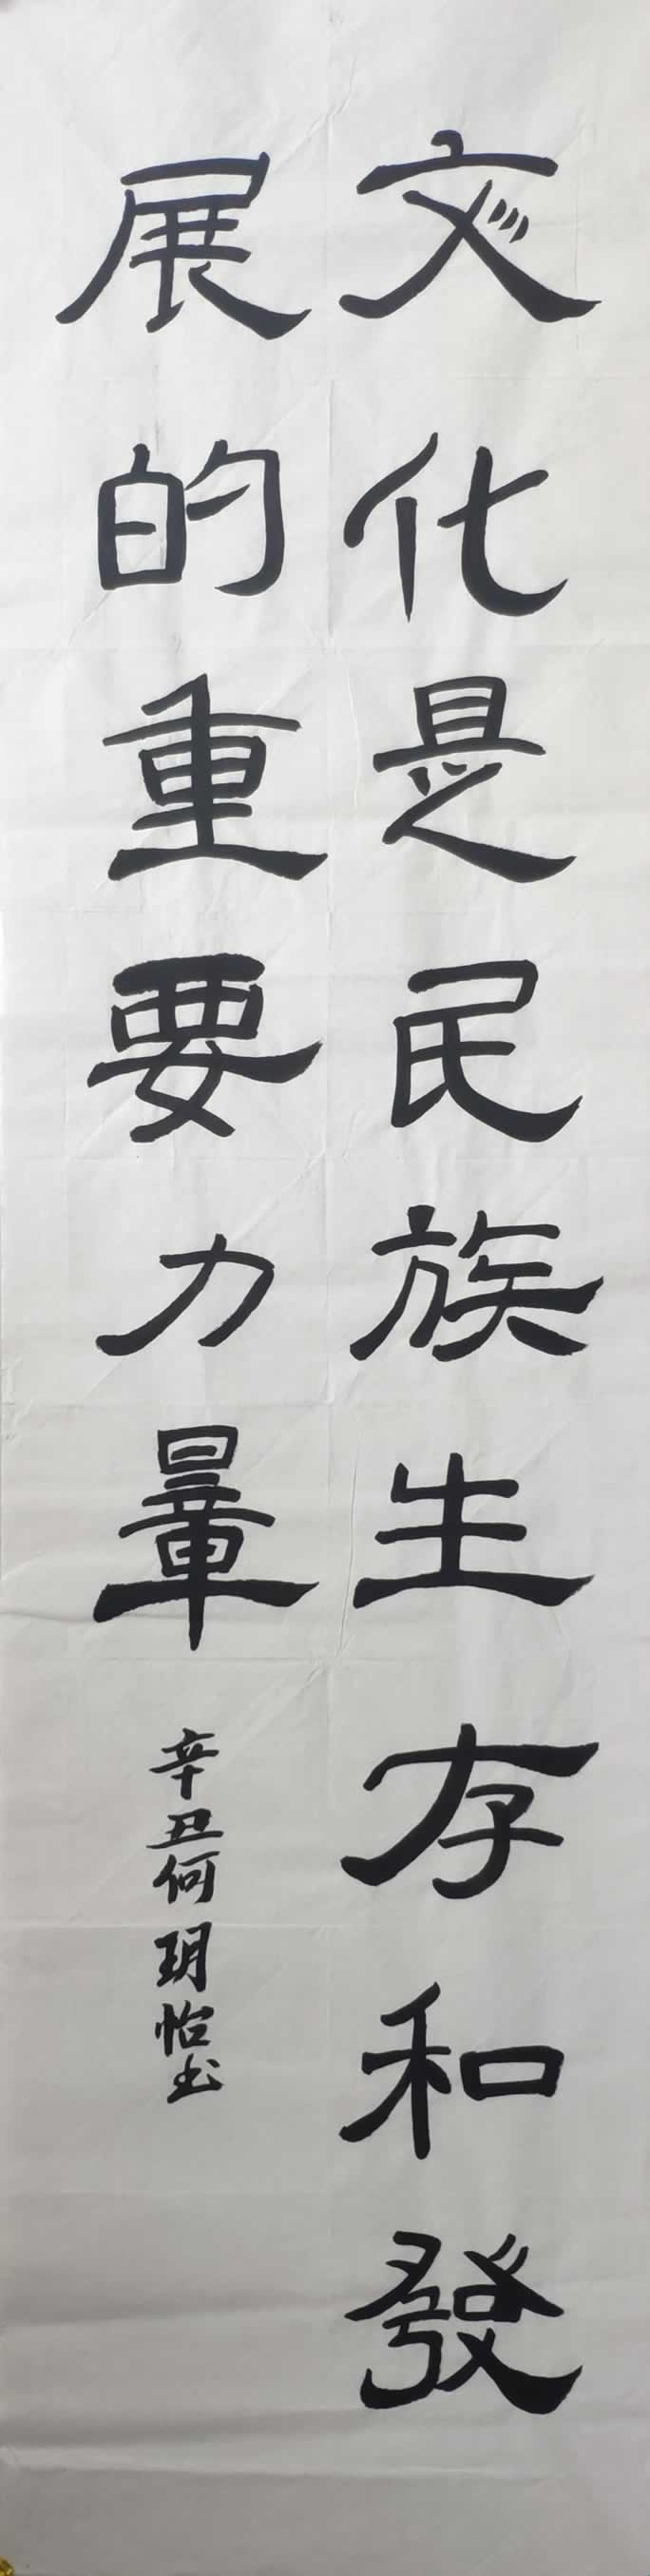 文化是民族生存和發
展的重要力量
辛丑何玥怡书